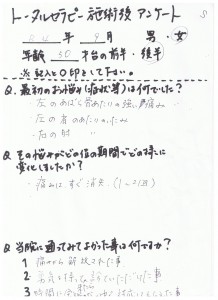 トータルセラピー施術後 アンケート
24年 9月 男・女
年齢 30 才台の前半・後半
※記入と○印をして下さい。
Q. 最初のお悩み(症状等)は何でしたか?
・左のあばら骨あたりの強い痛み
・左の首のあたりの
・右の肘
Q. そのお悩みがどの位の期間でどの様に
変化しましたか?
・痛みは、すぐ消失(1~2回)
Q. 当院に通ってみてよかった事は何ですか?
1 痛みから解放された事
2
3 時間に